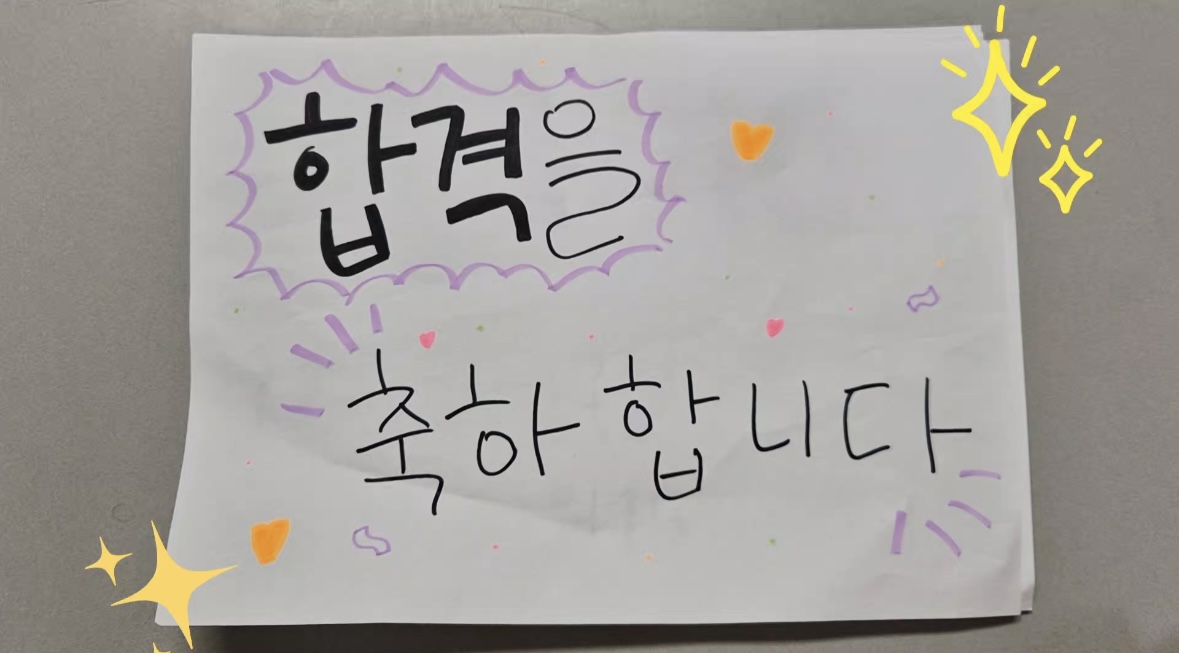 합격을
축하합니다